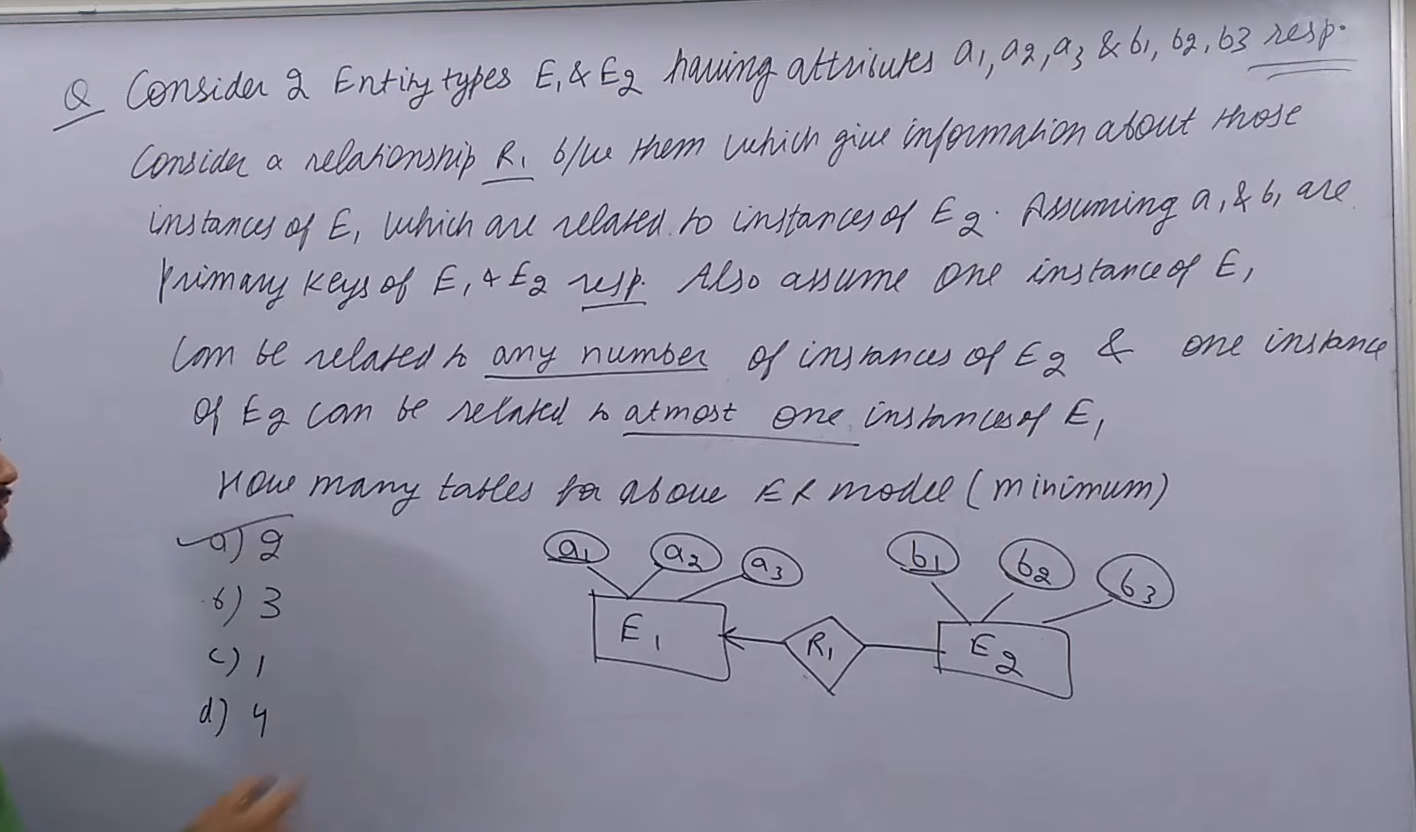 Q Consider 2 Entity types E1 & E2 having attributes a1, a2, a3 & b1, b2, b3 resp.
Consider a relationship R1 b/w them which give information about those
instances of E1 which are related to instances of E2. Assuming a1 & b1 are
primary keys of E1 & E2 resp. Also assume one instance of E1
Can be related to any number of instances of E2 & one instance
of E2 can be related to atmost one instances of E1
How many tables for above ER model (minimum)
a) 2
b) 3
c) 1
d) 4
a1 a2 a3 b1 b2 b3
E1 R1 E2